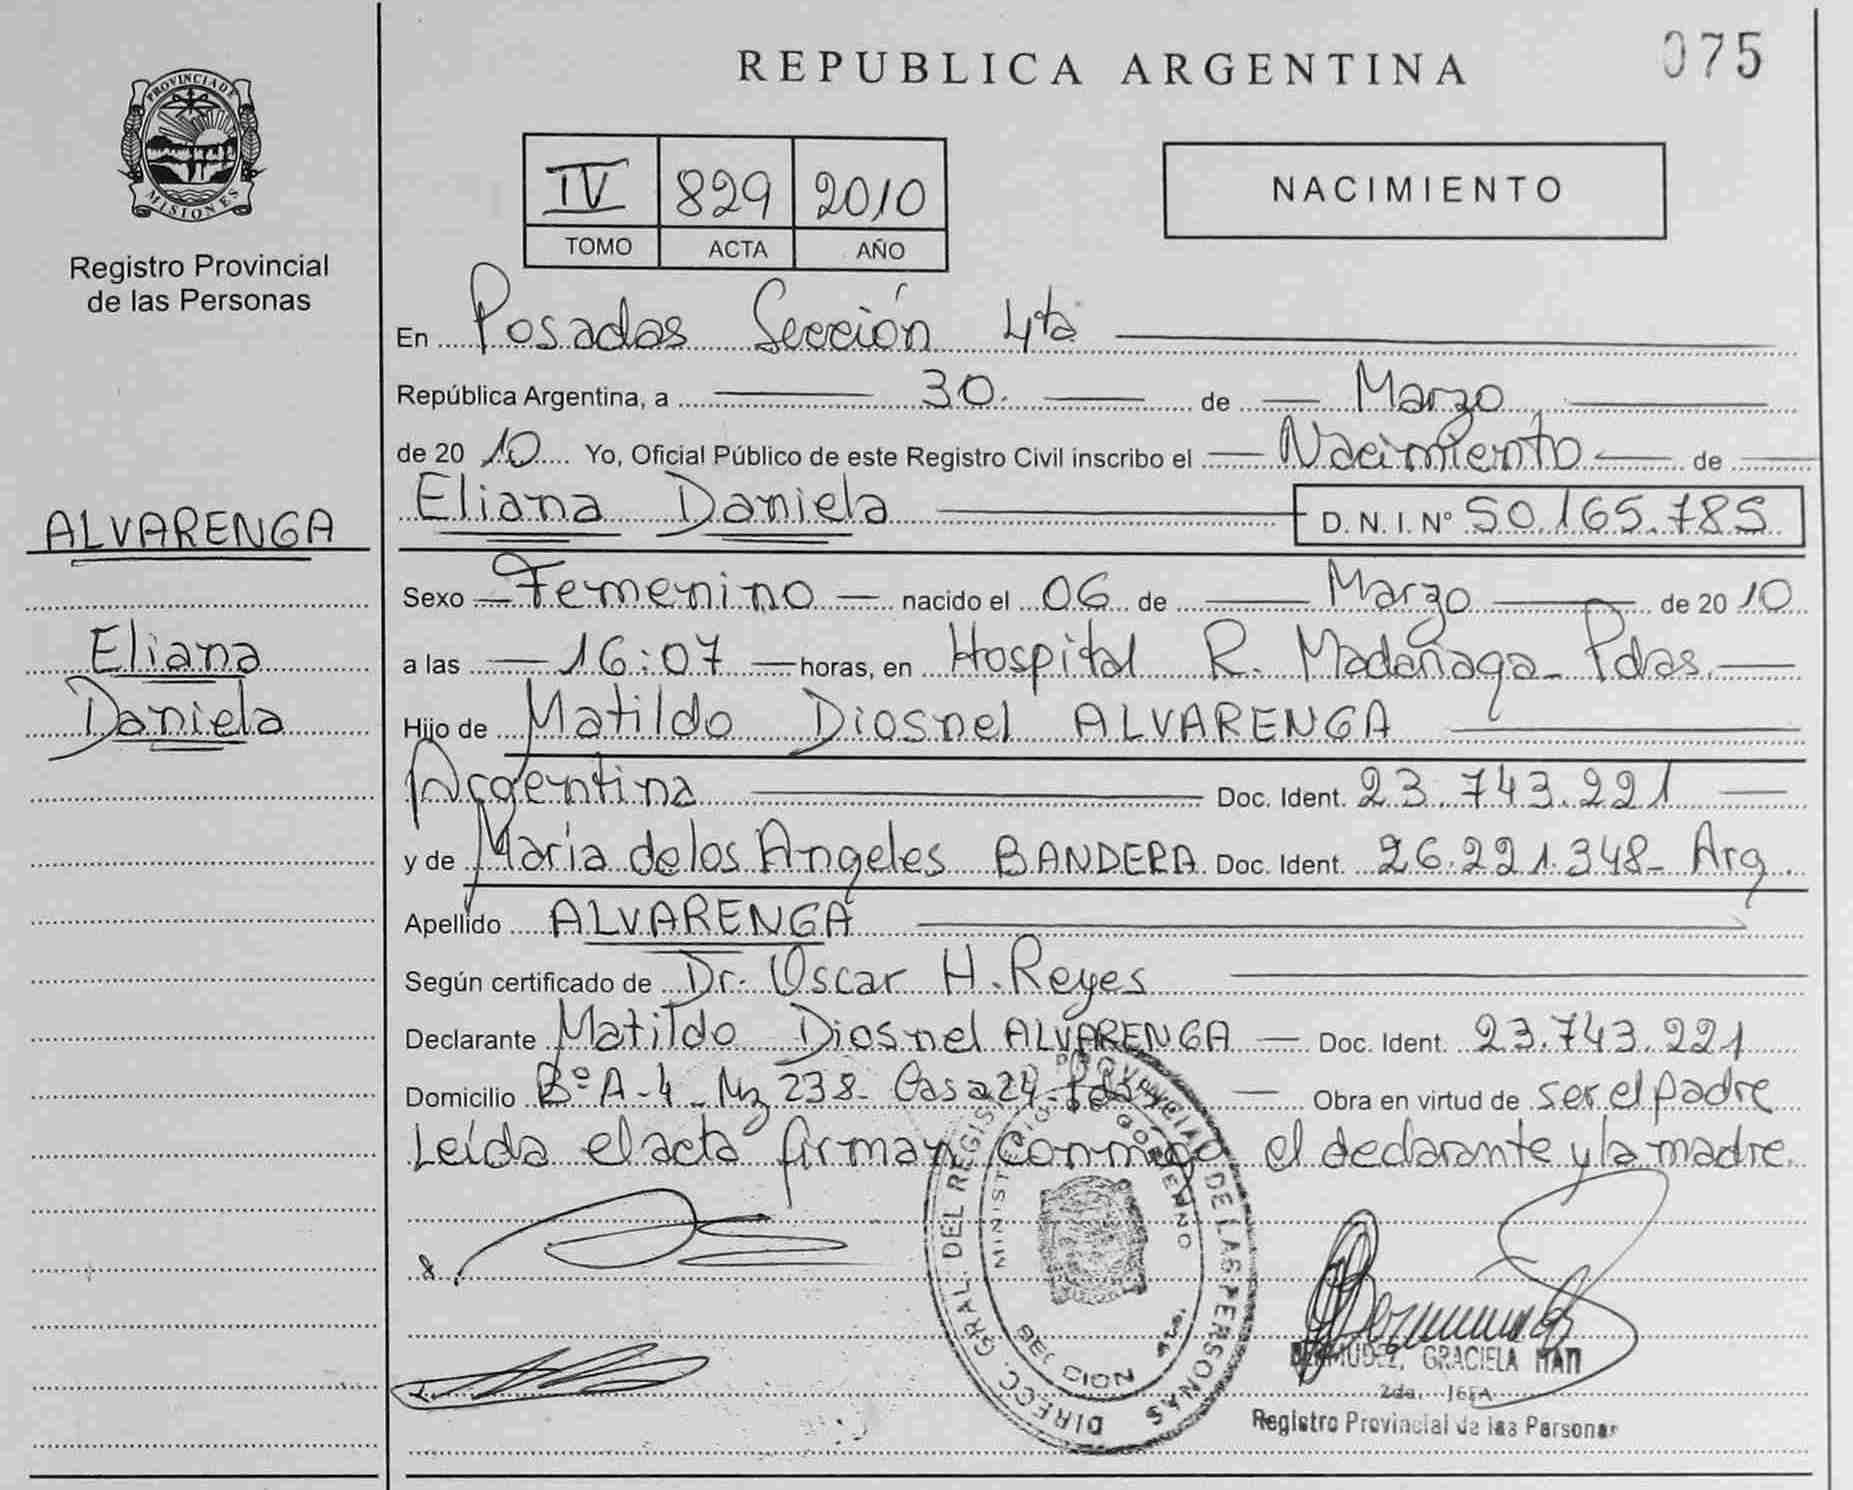 PROVINCIA DE
MISIONES
Registro Provincial
de las Personas
ALVARENGA
Eliana
Daniela
075
REPUBLICA ARGENTINA
IV 829 2010
TOMO ACTA AÑO
NACIMIENTO
En Posadas Sección 4ta
República Argentina, a 30 de Marzo
de 2010 Yo, Oficial Público de este Registro Civil inscribo el Nacimiento de
Eliana Daniela D.N.I. Nº 50.165.785
Sexo Femenino nacido el 06 de Marzo de 2010
a las 16:07 horas, en Hospital R. Madariaga - Pdas.
Hijo de Matildo Diosnel ALVARENGA
Argentina Doc. Ident. 23.743.221
y de Maria de los Angeles BANDERA Doc. Ident. 26.221.348- Arg.
Apellido ALVARENGA
Según certificado de Dr. Oscar H. Reyes
Declarante Matildo Diosnel ALVARENGA Doc. Ident. 23.743.221
Domicilio Bº A-4 - Mz 238- Casa 24- Pdas Obra en virtud de ser el padre
Leída el acta firman conmigo el declarante y la madre.
DIRECC. GRAL. DEL REGISTRO PROVINCIAL DE LAS PERSONAS
MINISTERIO DE GOBIERNO
SECCION 4ta.
BERMUDEZ, GRACIELA MARI
2da. JEFA
Registro Provincial de las Personas